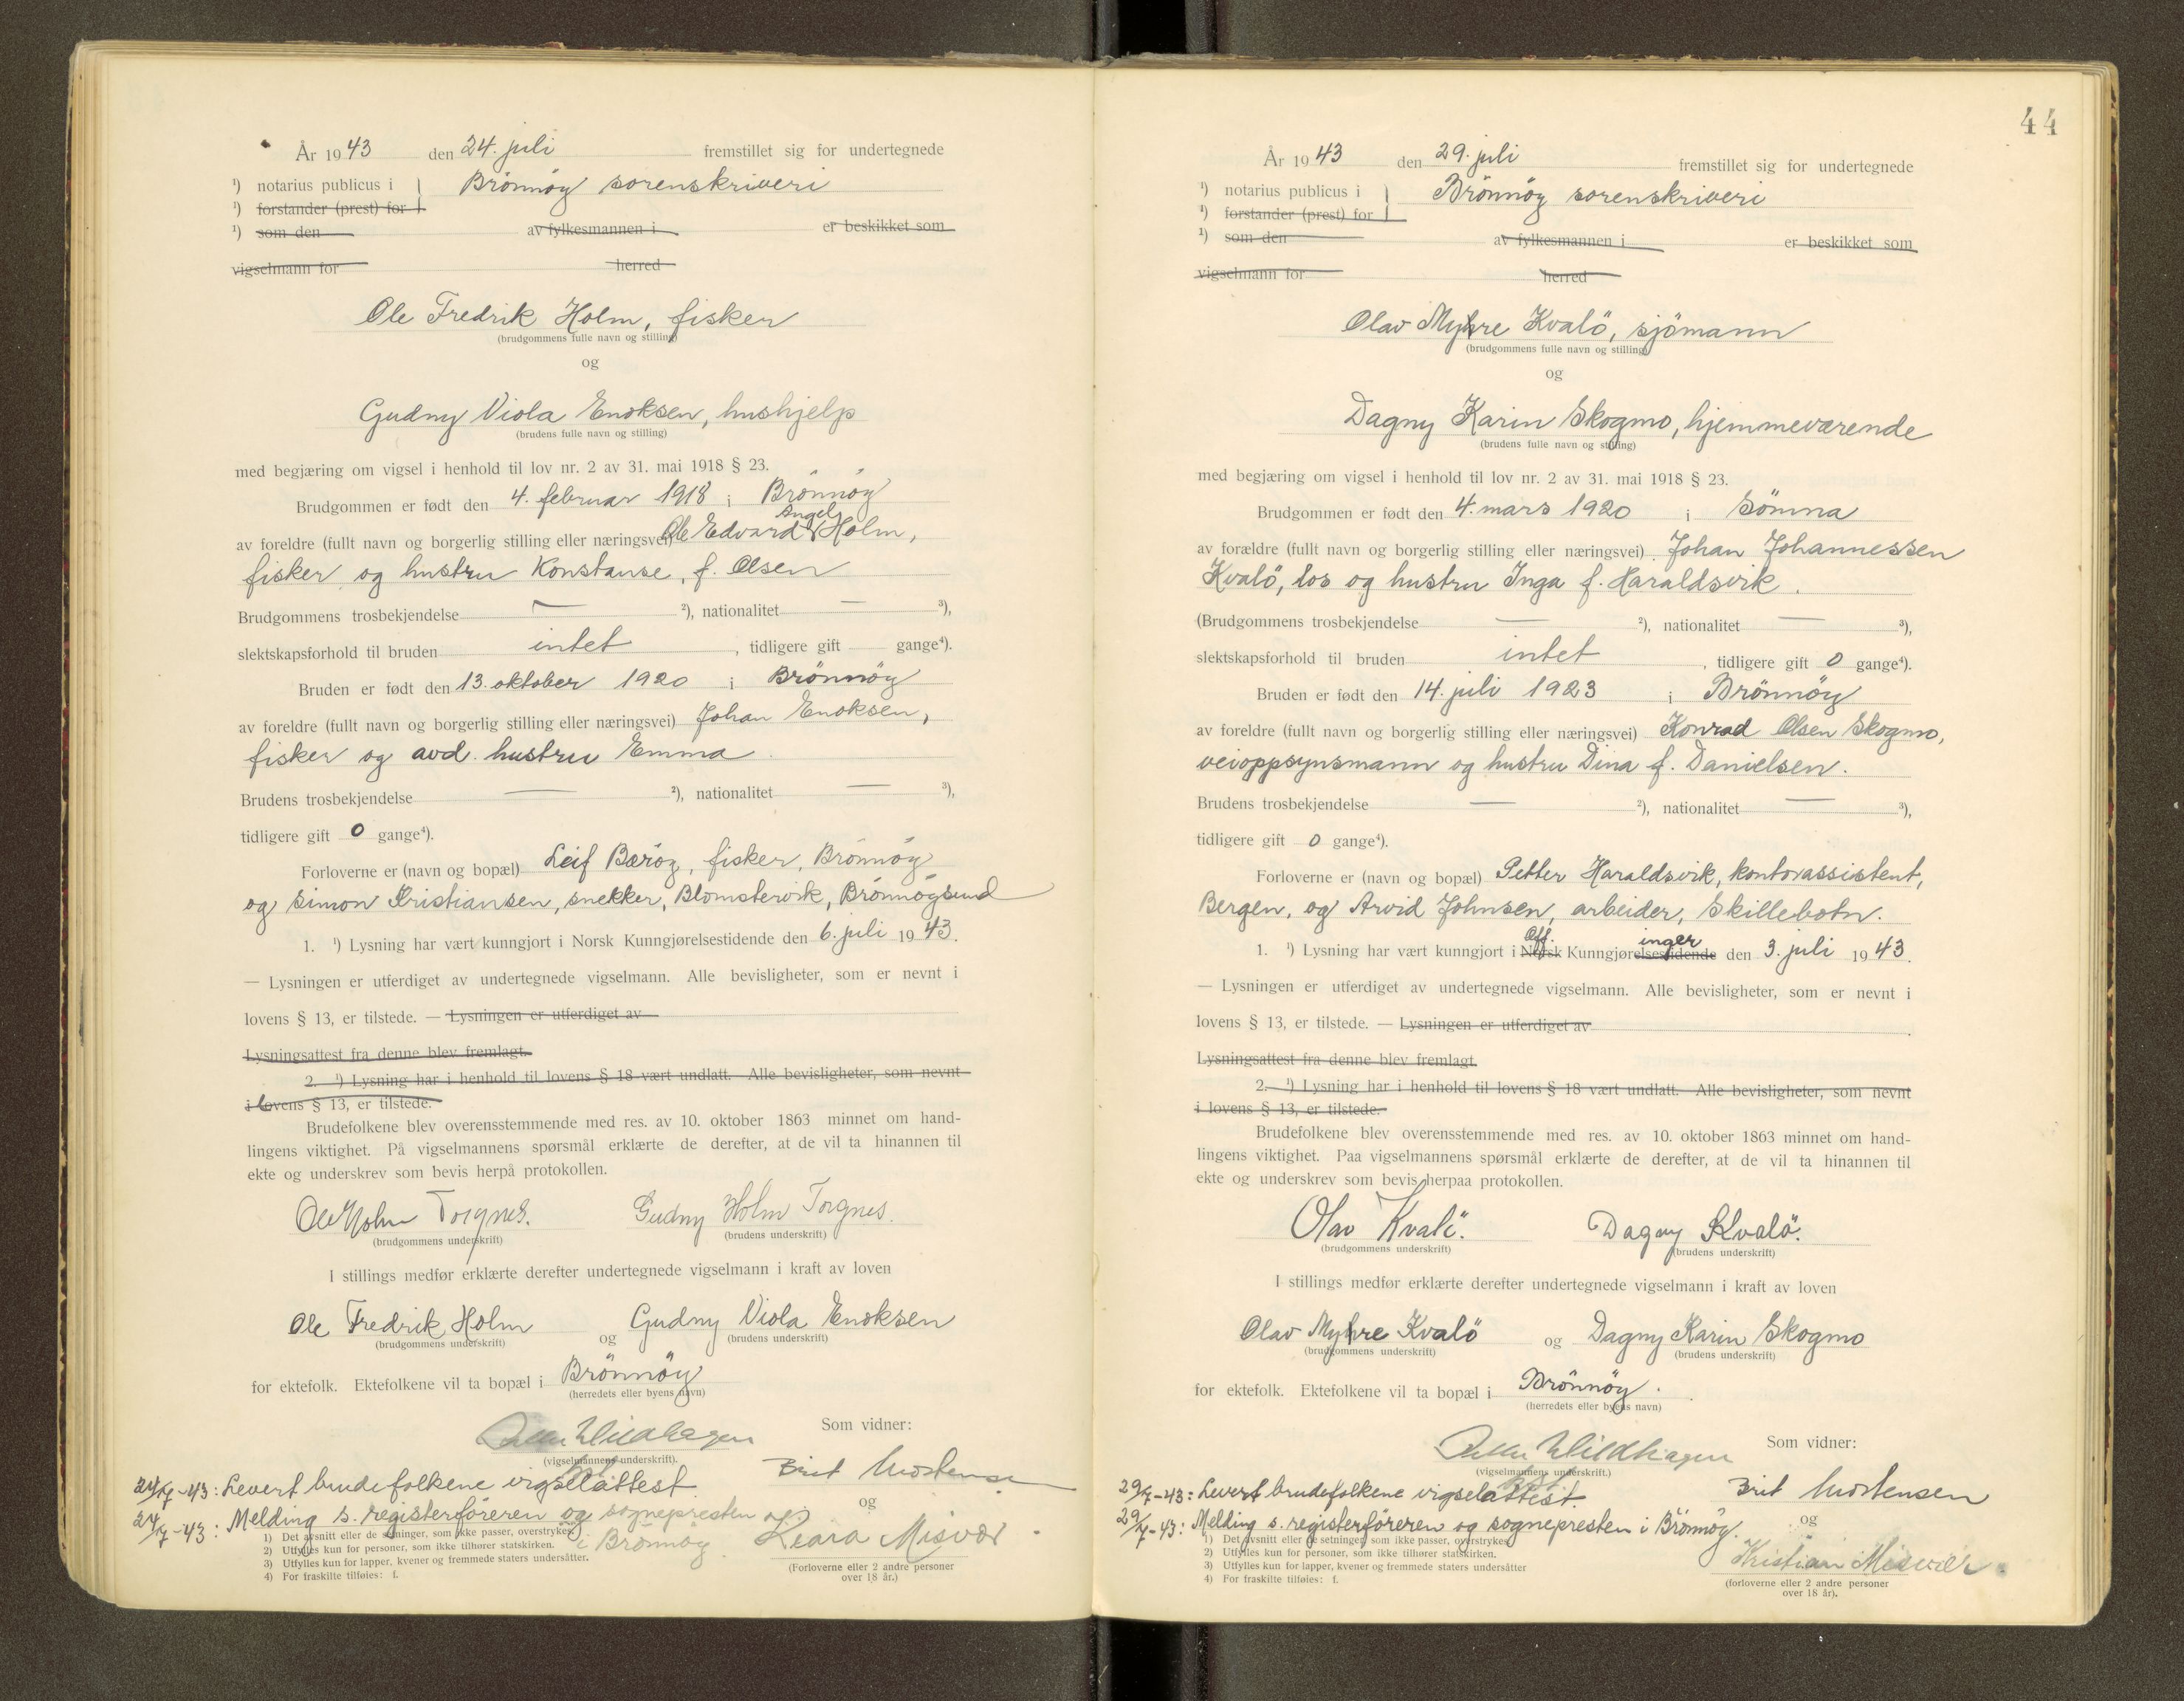 År 1943 den 24. juli fremstillet sig for undertegnede
¹) notarius publicus i } Brönnöy sorenskriveri
¹) forstander (prest) for
¹) som den av fylkesmannen i er beskikket som
vigselmann for herred
Ole Fredrik Holm, fisker
(brudgommens fulle navn og stilling)
og
Gudny Viola Enoksen, hushjelp
(brudens fulle navn og stilling)
med begjæring om vigsel i henhold til lov nr. 2 av 31. mai 1918 § 23.
Brudgommen er født den 4. februar 1918 i Brönnöy
Angel
av foreldre (fullt navn og borgerlig stilling eller næringsvei) Ole Edvard Holm,
fisker og hustru Konstanse, f. Olsen
Brudgommens trosbekjendelse — ²), nationalitet — ³),
slektskapsforhold til bruden intet , tidligere gift — gange⁴).
Bruden er født den 13. oktober 1920 i Brönnöy
av foreldre (fullt navn og borgerlig stilling eller næringsvei) Johan Enoksen,
fisker og avd. hustru Emma
Brudens trosbekjendelse — ²), nationalitet — ³),
tidligere gift 0 gange⁴).
Forloverne er (navn og bopæl) Leif Bæröy, fisker, Brönnöy
og Simon Kristiansen, snekker, Blomstervik, Brönnöysund
1. ¹) Lysning har vært kunngjort i Norsk Kunngjørelsestidende den 6. juli 1943.
— Lysningen er utferdiget av undertegnede vigselmann. Alle bevisligheter, som er nevnt i
lovens § 13, er tilstede. — Lysningen er utferdiget av
Lysningsattest fra denne blev fremlagt.
2. ¹) Lysning har i henhold til lovens § 18 vært undlatt. Alle bevisligheter, som nevnt
i lovens § 13, er tilstede.
Brudefolkene blev overensstemmende med res. av 10. oktober 1863 minnet om hand-
lingens viktighet. På vigselmannens spørsmål erklærte de derefter, at de vil ta hinannen til
ekte og underskrev som bevis herpå protokollen.
Ole Holm Torgnes. Gudny Holm Torgnes.
(brudgommens underskrift) (brudens underskrift)
I stillings medfør erklærte derefter undertegnede vigselmann i kraft av loven
Ole Fredrik Holm og Gudny Viola Enoksen
(brudgommens underskrift) (brudens underskrift)
for ektefolk. Ektefolkene vil ta bopæl i Brönnöy
(herredets eller byens navn)
Wildhagen Som vidner:
(vigselmannens underskrift).
24/7-43: Levert brudefolkene vigselattest. Brit Mortensen
24/7-43: Melding s. registerföreren og sognepresten og
i Brönnöy Klara Misvær
1) Det avsnitt eller de setninger, som ikke passer, overstrykes.
2) Utfylles kun for personer, som ikke tilhører statskirken.
3) Utfylles kun for lapper, kvener og fremmede staters undersåtter.
4) For fraskilte tilføies: f.
(Forloverne eller 2 andre personer
over 18 år.)
44
År 1943 den 29. juli fremstillet sig for undertegnede
¹) notarius publicus i } Brönnöy sorenskriveri
¹) forstander (prest) for
¹) som den av fylkesmannen i er beskikket som
vigselmann for herred
Olav Myhre Kvalö, sjömann
(brudgommens fulle navn og stilling)
og
Dagny Karin Skogmo, hjemmeværende
(brudens fulle navn og stilling)
med begjæring om vigsel i henhold til lov nr. 2 av 31. mai 1918 § 23.
Brudgommen er født den 4. mars 1920 i Sömna
av forældre (fullt navn og borgerlig stilling eller næringsvei) Johan Johannessen
Kvalö, los og hustru Inga f. Haraldsvik.
(Brudgommens trosbekjendelse — ²), nationalitet — ³),
slektskapsforhold til bruden intet , tidligere gift 0 gange⁴).
Bruden er født den 14. juli 1923 i Brönnöy
av foreldre (fullt navn og borgerlig stilling eller næringsvei) Konrad Olsen Skogmo,
veioppsynsmann og hustru Dina f. Danielsen.
Brudens trosbekjendelse — ²), nationalitet — ³),
tidligere gift 0 gange⁴).
Forloverne er (navn og bopæl) Petter Haraldsvik, kontorassistent,
Bergen, og Arvid Johnsen, arbeider, Skillebotn.
Off. inger
1. ¹) Lysning har vært kunngjort i Norsk Kunngjørelsestidende den 3. juli 1943.
— Lysningen er utferdiget av undertegnede vigselmann. Alle bevisligheter, som er nevnt i
lovens § 13, er tilstede. — Lysningen er utferdiget av
Lysningsattest fra denne blev fremlagt.
2. ¹) Lysning har i henhold til lovens § 18 vært undlatt. Alle bevisligheter, som nevnt
i lovens § 13, er tilstede.
Brudefolkene blev overensstemmende med res. av 10. oktober 1863 minnet om hand-
lingens viktighet. Paa vigselmannens spørsmål erklærte de derefter, at de vil ta hinannen til
ekte og underskrev som bevis herpaa protokollen.
Olav Kvalö. Dagny Kvalö.
(brudgommens underskrift) (brudens underskrift)
I stillings medfør erklærte derefter undertegnede vigselmann i kraft av loven
Olav Myhre Kvalö og Dagny Karin Skogmo
(brudgommens underskrift) (brudens underskrift)
for ektefolk. Ektefolkene vil ta bopæl i Brönnöy.
(herredets eller byens navn)
Wildhagen Som vidner:
(vigselmannens underskrift.)
29/7-43: Levert brudefolkene vigselattest. Brit Mortensen
29/7-43: Melding s. registerföreren og sognepresten i Brönnöy. og
Kristian Misvær
1) Det avsnitt eller de setninger, som ikke passer, overstrykes.
2) Utfylles kun for personer, som ikke tilhører statskirken.
3) Utfylles kun for lapper, kvener og fremmede staters undersåtter
4) For fraskilte tilføies: f.
(forloverne eller 2 andre personer
over 18 år).